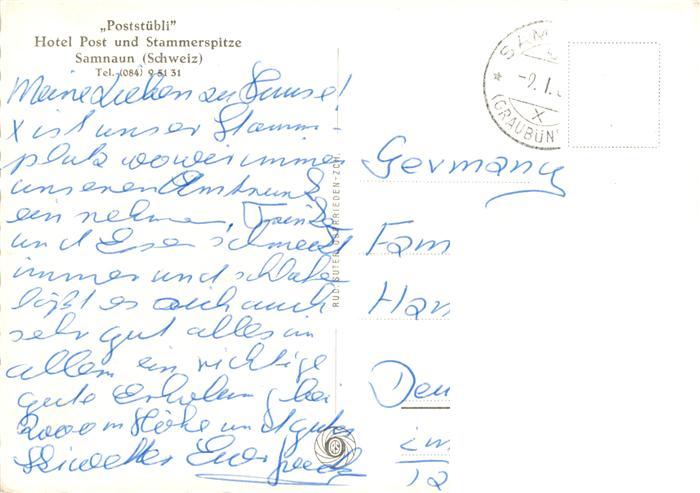 „Poststübli”
Hotel Post und Stammerspitze
Samnaun (Schweiz)
Tel.-(084) 9 51 31
Meine Lieben zu Hause!
X ist unser Stamm-
platz wo wir immer
unseren Umtrunk
einnehmen, Trinken
und Essen schmeckt
immer und schlafen
läßt es sich auch
sehr gut alles in
allem ein richtige
gute Erholung bei
2000 m Höhe und gutes
Skiwetter Euer
RUD. SUTER, OBERRIEDEN-ZCH.
SAM
-9.1.
X
(GRAUBÜN
Germany
Fam
Han
Deu
im